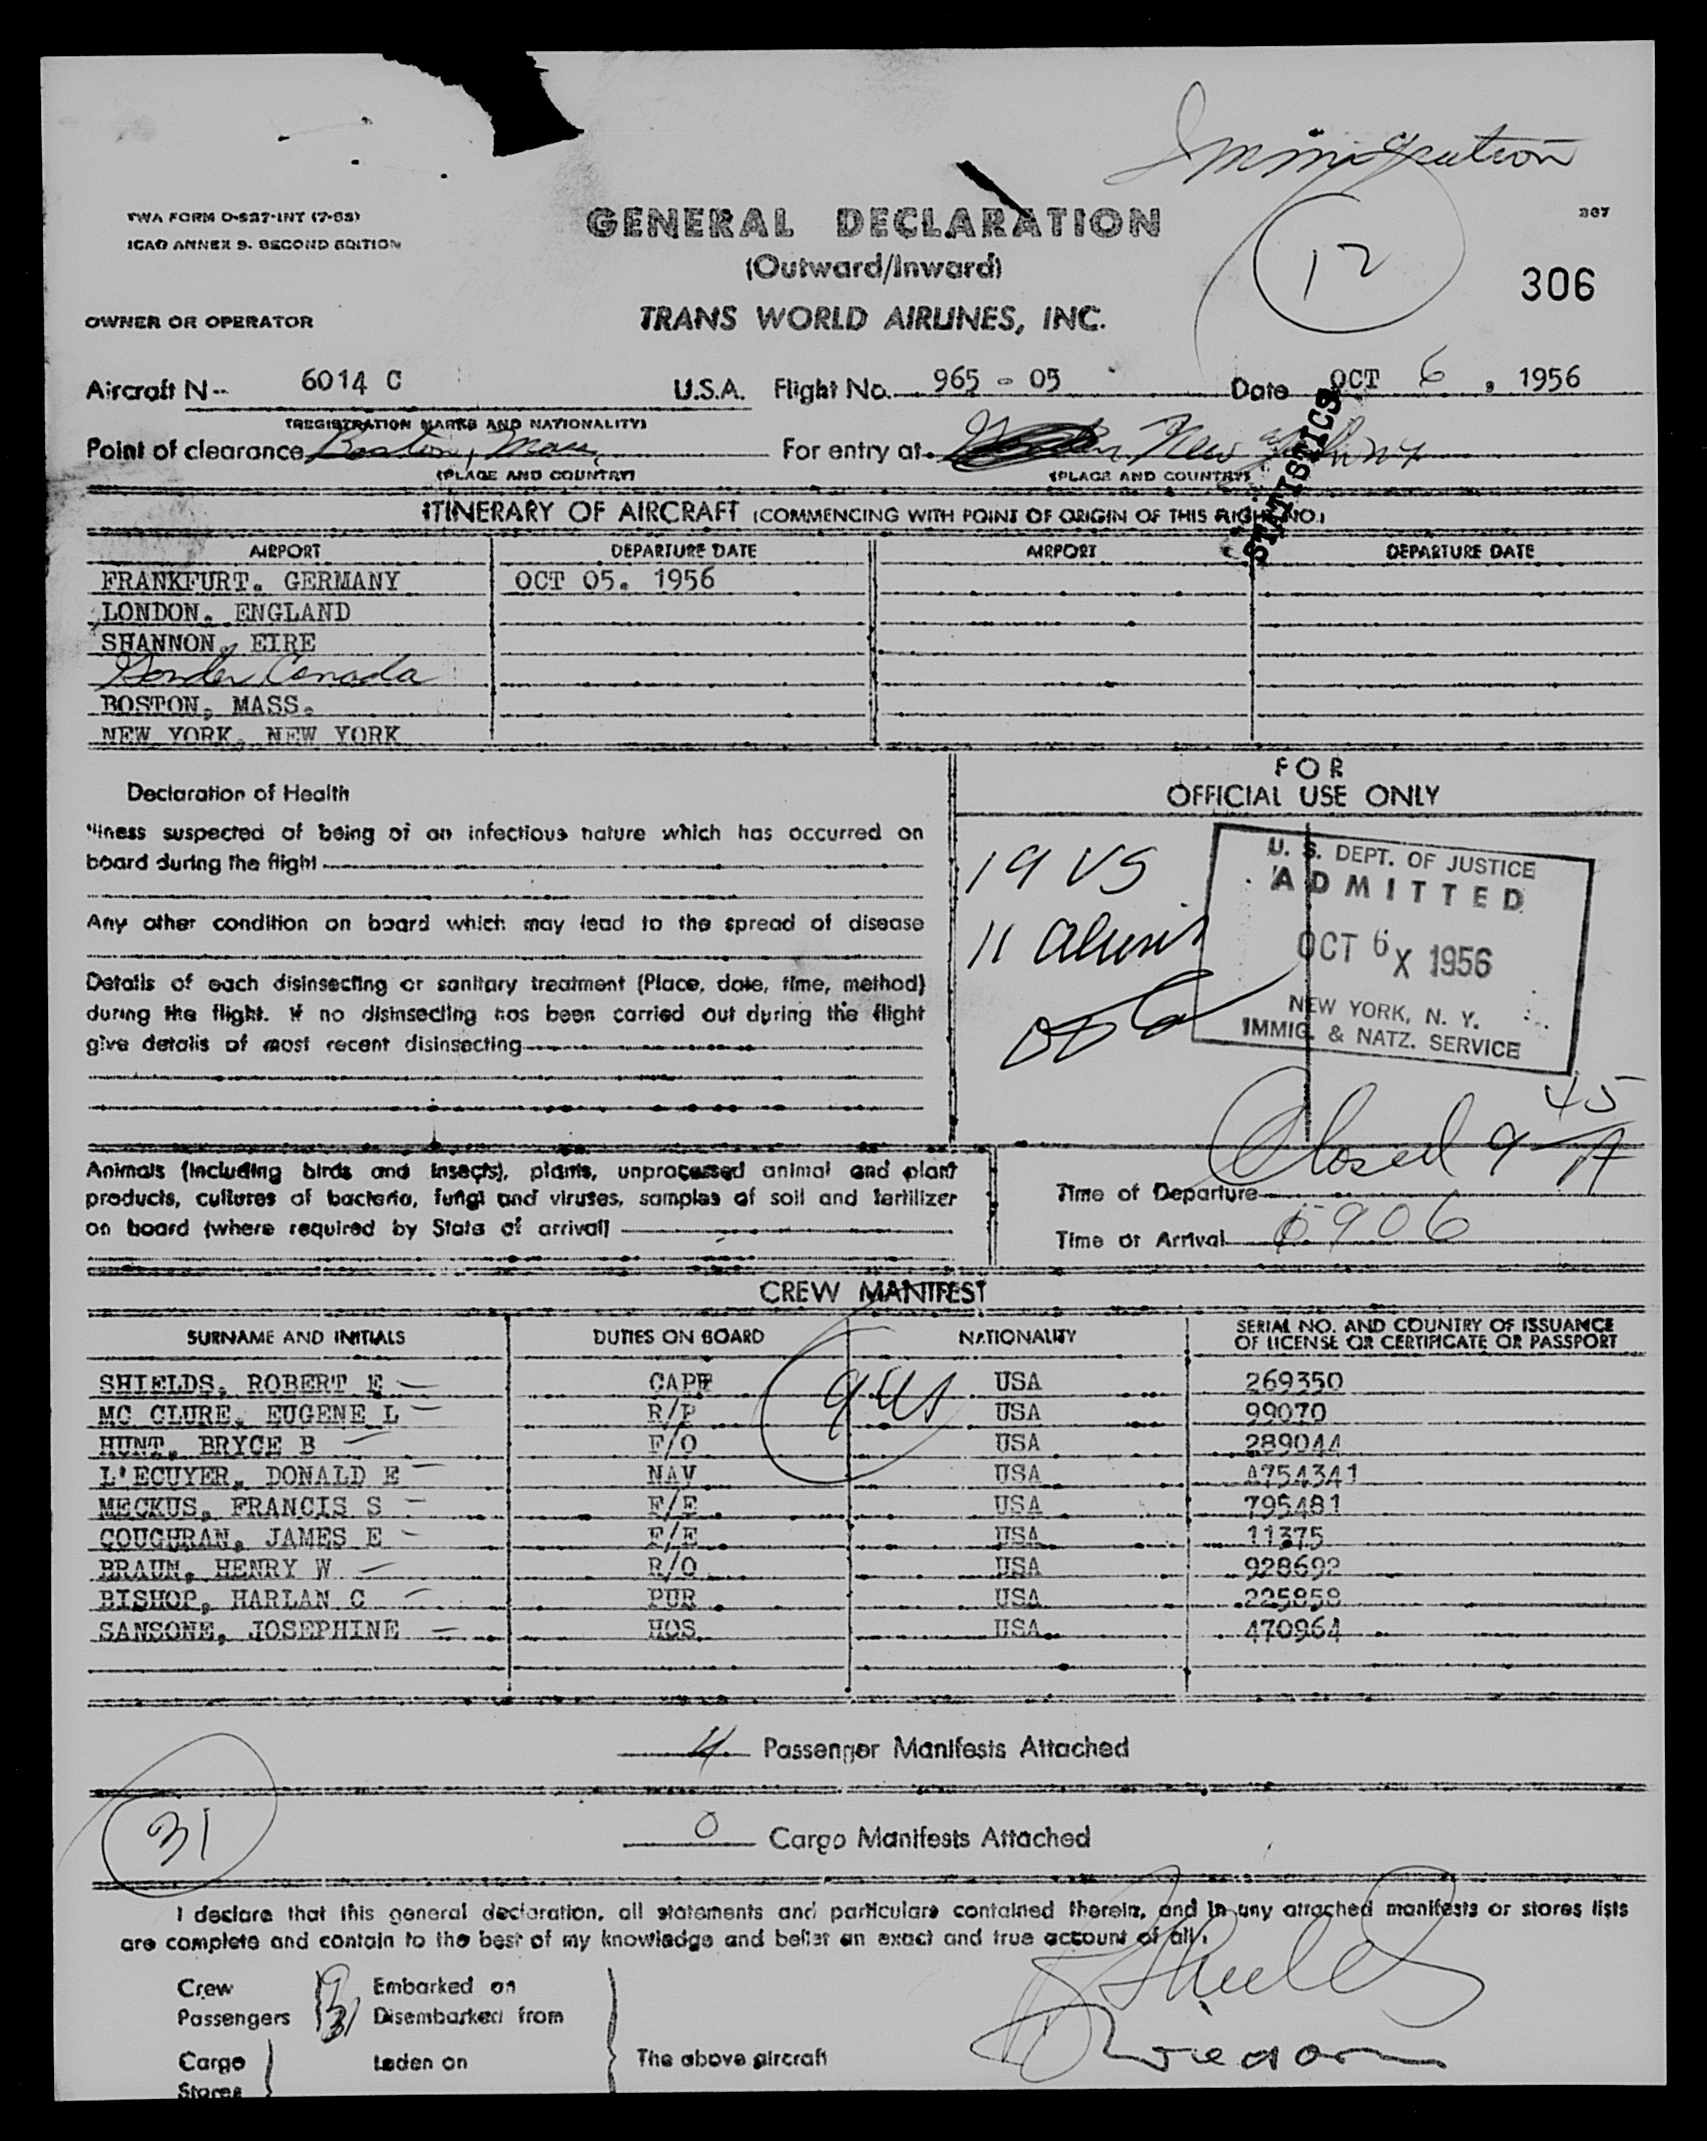 Immigration
TWA FORM O-527-INT (7-53)
ICAO ANNEX 9. SECOND EDITION
GENERAL DECLARATION
(Outward/Inward)
307
12
306
OWNER OR OPERATOR
TRANS WORLD AIRLINES, INC.
Aircraft N-- 6014 C U.S.A. Flight No. 965 - 05 Date OCT 6, 1956
(REGISTRATION MARKS AND NATIONALITY)
Point of clearance Boston, Mass, For entry at New York NY
(PLACE AND COUNTRY) (PLACE AND COUNTRY)
STATISTICS
ITINERARY OF AIRCRAFT (COMMENCING WITH POINT OF ORIGIN OF THIS FLIGHT NO.)
AIRPORT DEPARTURE DATE AIRPORT DEPARTURE DATE
FRANKFURT. GERMANY OCT 05. 1956
LONDON. ENGLAND
SHANNON, EIRE
Gander Canada
BOSTON, MASS.
NEW YORK, NEW YORK
Declaration of Health
Illness suspected of being of an infectious nature which has occurred on
board during the flight
Any other condition on board which may lead to the spread of disease
Details of each disinsecting or sanitary treatment (Place, date, time, method)
during the flight. If no disinsecting has been carried out during the flight
give details of most recent disinsecting
FOR
OFFICIAL USE ONLY
19 US
11 aliens
U. S. DEPT. OF JUSTICE
ADMITTED
OCT 6 X 1956
NEW YORK, N. Y.
IMMIG. & NATZ. SERVICE
Closed 9 45 A
Animals (including birds and insects), plants, unprocessed animal and plant
products, cultures of bacteria, fungi and viruses, samples of soil and fertilizer
on board (where required by State of arrival)
Time of Departure
Time of Arrival 0906
CREW MANIFEST
SURNAME AND INITIALS DUTIES ON BOARD NATIONALITY SERIAL NO. AND COUNTRY OF ISSUANCE
OF LICENSE OR CERTIFICATE OR PASSPORT
9 US
SHIELDS, ROBERT E CAPT USA 269350
MC CLURE, EUGENE L R/P USA 99070
HUNT, BRYCE B F/O USA 289044
L'ECUYER, DONALD E NAV USA A754341
MECKUS, FRANCIS S F/E USA 795481
COUGHRAN, JAMES E F/E USA 11375
BRAUN, HENRY W R/O USA 928692
BISHOP, HARLAN C PUR USA 225858
SANSONE, JOSEPHINE HOS USA 470964
4 Passenger Manifests Attached
31
0 Cargo Manifests Attached
I declare that this general declaration, all statements and particulars contained therein, and in any attached manifests or stores lists
are complete and contain to the best of my knowledge and belief an exact and true account of all:
Crew 9 Embarked on
Passengers 31 Disembarked from
Cargo Laden on The above aircraft
Stores
Shields